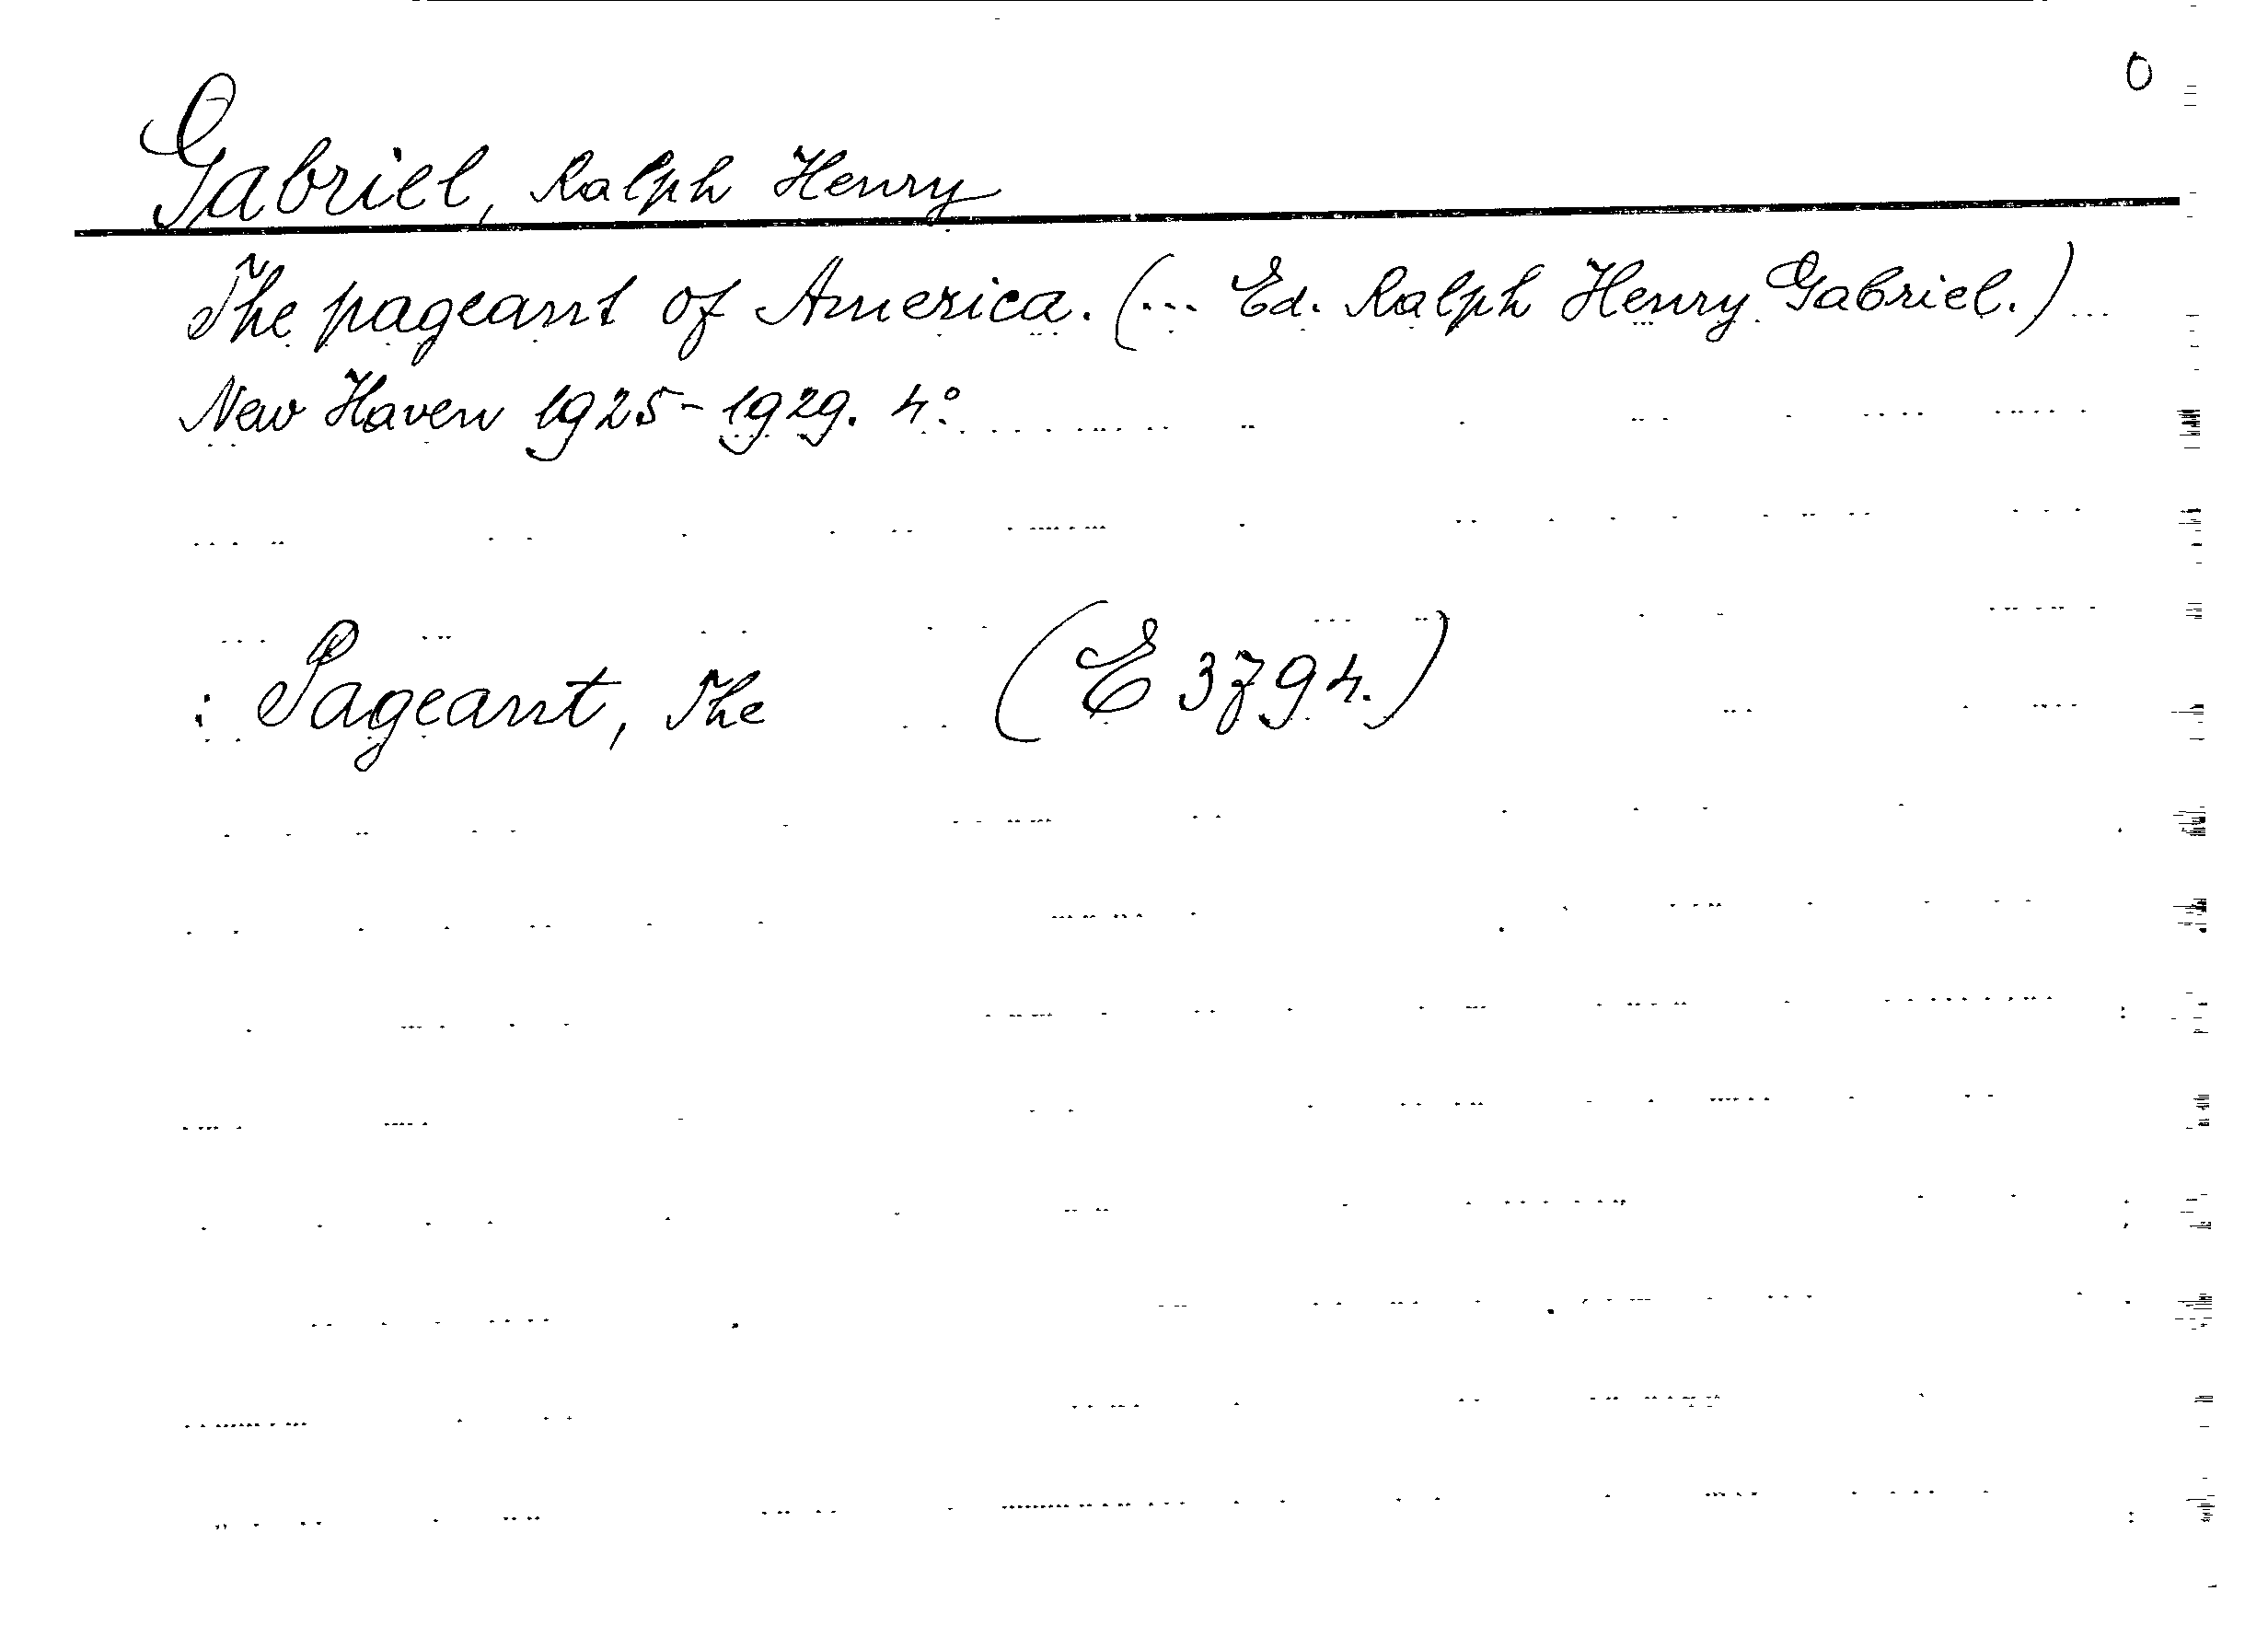 0
Gabriel, Ralph Henry
The pageant of America. (... Ed. Ralph Henry Gabriel.)
New Haven 1925-1929. 4°
: Pageant, The (E 3794.)